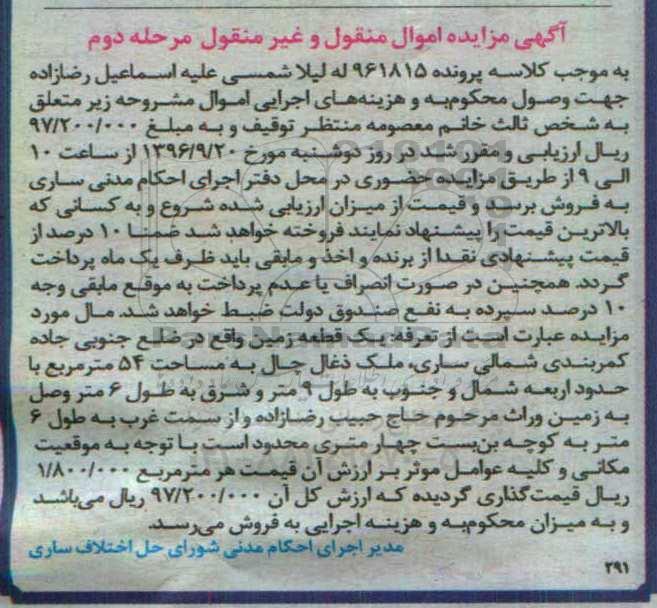 آگهی مزایده اموال منقول و غیر منقول مرحله دوم
به موجب کلاسه پرونده ۹۶۱۸۱۵ له لیلا شمسی علیه اسماعیل رضازاده
جهت وصول محکوم‌به و هزینه‌های اجرایی اموال مشروحه زیر متعلق
به شخص ثالث خانم معصومه منتظر توقیف و به مبلغ ۹۷/۲۰۰/۰۰۰
ریال ارزیابی و مقرر شد در روز دوشنبه مورخ ۱۳۹۶/۹/۲۰ از ساعت ۱۰
الی ۹ از طریق مزایده حضوری در محل دفتر اجرای احکام مدنی ساری
به فروش برسد و قیمت از میزان ارزیابی شده شروع و به کسانی که
بالاترین قیمت را پیشنهاد نمایند فروخته خواهد شد ضمنا ۱۰ درصد از
قیمت پیشنهادی نقدا از برنده و اخذ و مابقی باید ظرف یک ماه پرداخت
گردد. همچنین در صورت انصراف یا عدم پرداخت به موقع مابقی وجه
۱۰ درصد سپرده به نفع صندوق دولت ضبط خواهد شد. مال مورد
مزایده عبارت است از تعرفه: یک قطعه زمین واقع در ضلع جنوبی جاده
کمربندی شمالی ساری، ملک ذغال چال به مساحت ۵۴ مترمربع با
حدود اربعه شمال و جنوب به طول ۹ متر و شرق به طول ۶ متر وصل
به زمین وراث مرحوم حاج حبیب رضازاده و از سمت غرب به طول ۶
متر به کوچه بن‌بست چهار متری محدود است با توجه به موقعیت
مکانی و کلیه عوامل موثر بر ارزش آن قیمت هر مترمربع ۱/۸۰۰/۰۰۰
ریال قیمت‌گذاری گردیده که ارزش کل آن ۹۷/۲۰۰/۰۰۰ ریال می‌باشد
و به میزان محکوم‌به و هزینه اجرایی به فروش می‌رسد.
مدیر اجرای احکام مدنی شورای حل اختلاف ساری
۲۹۱